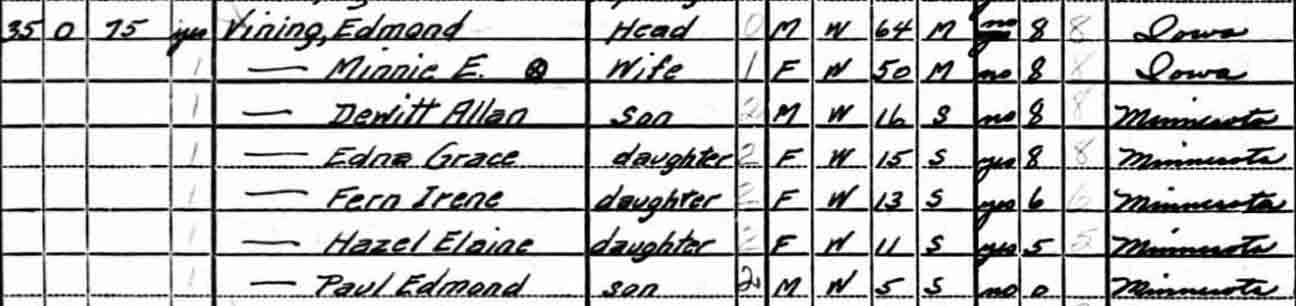 35 0 75 yes Vining, Edmond Head 0 M W 64 M no 8 8 Iowa
1 — Minnie E. ⓧ Wife 1 F W 50 M no 8 8 Iowa
1 — Dewitt Allan son 2 M W 16 S no 8 8 Minnesota
1 — Edna Grace daughter 2 F W 15 S yes 8 8 Minnesota
1 — Fern Irene daughter 2 F W 13 S yes 6 6 Minnesota
1 — Hazel Elaine daughter 2 F W 11 S yes 5 5 Minnesota
1 — Paul Edmond son 2 M W 5 S no 0 Minnesota